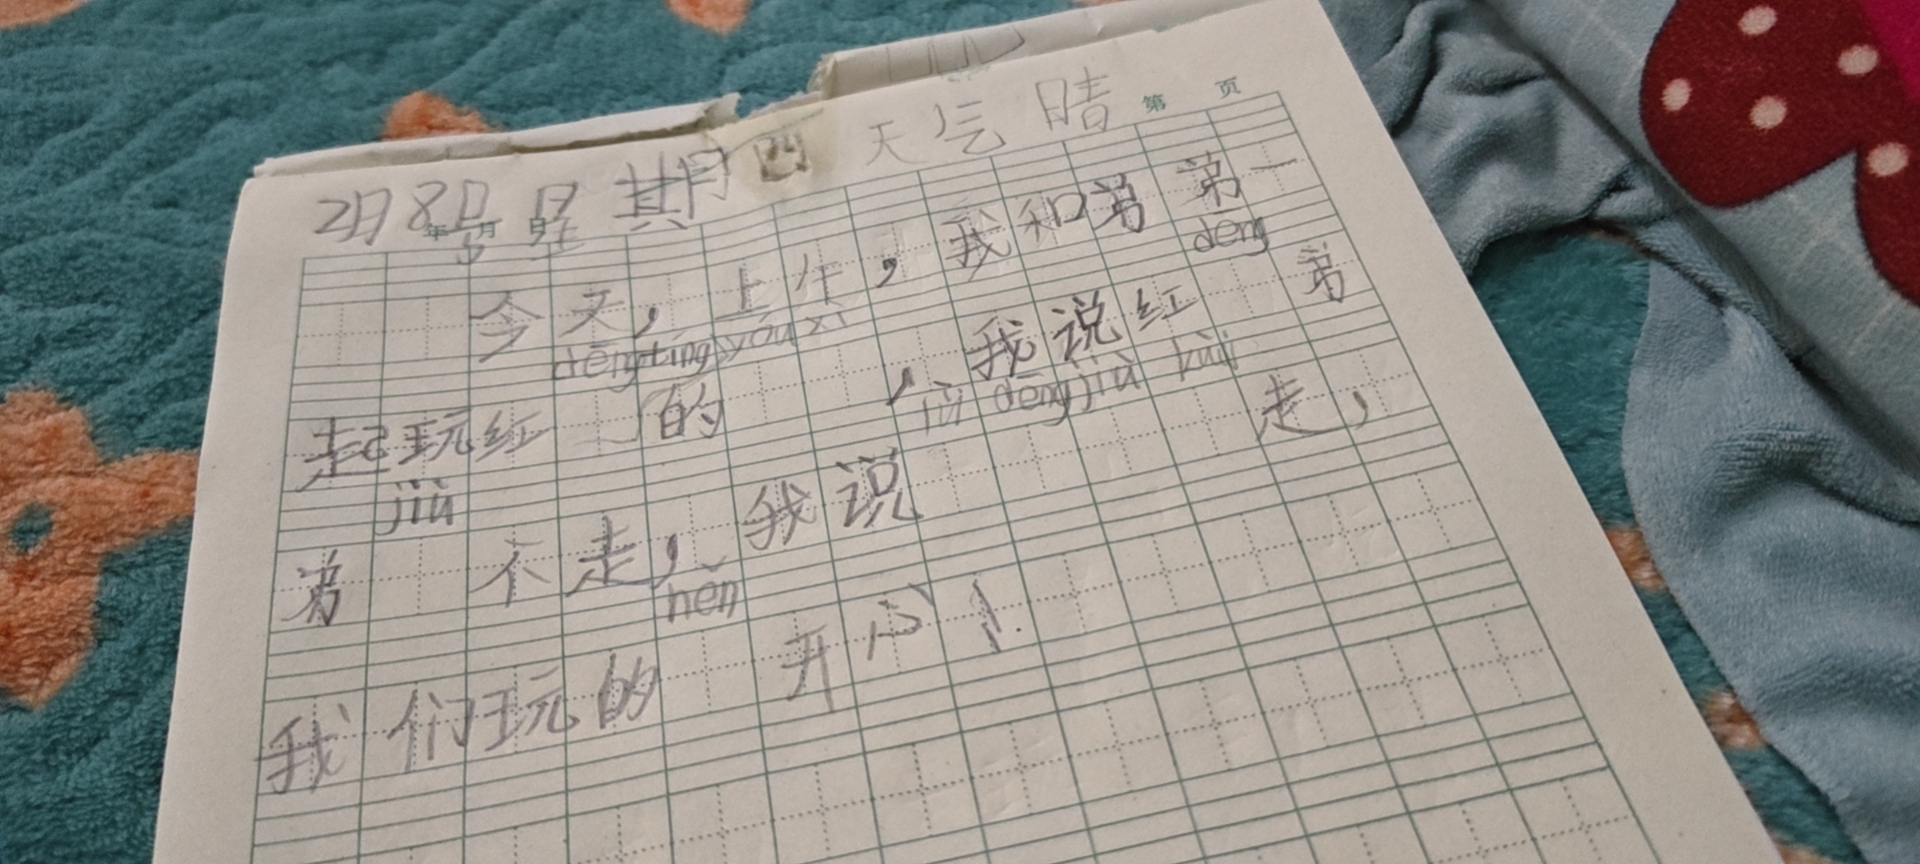 2月8号 星期四 天气晴 第 页
年 月 日
今天,上午,我和弟弟一
dēng tíng yóu xì dēng
起玩红 的 ,我说红 弟
jiù lǜ dēng jiù kuài
弟 不走,我说 走,
hěn
我们玩的 开心!